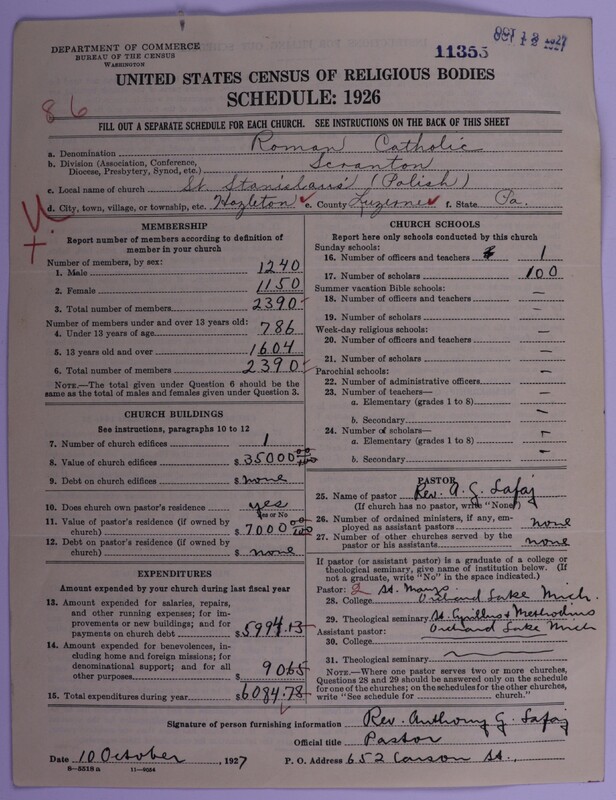 DEPARTMENT OF COMMERCE
BUREAU OF THE CENSUS
WASHINGTON
11355
OCT 12 1927
86
UNITED STATES CENSUS OF RELIGIOUS BODIES
SCHEDULE: 1926
FILL OUT A SEPARATE SCHEDULE FOR EACH CHURCH. SEE INSTRUCTIONS ON THE BACK OF THIS SHEET
a. Denomination Roman Catholic
b. Division (Association, Conference, Diocese, Presbytery, Synod, etc.) Scranton
c. Local name of church St. Stanislaus' (Polish)
d. City, town, village, or township, etc. Hazleton e. County Luzerne f. State Pa.
MEMBERSHIP
Report number of members according to definition of member in your church
Number of members, by sex:
1. Male 1240
2. Female 1150
3. Total number of members 2390
Number of members under and over 13 years old:
4. Under 13 years of age 786
5. 13 years old and over 1604
6. Total number of members 2390
NOTE.—The total given under Question 6 should be the same as the total of males and females given under Question 3.
CHURCH BUILDINGS
See instructions, paragraphs 10 to 12
7. Number of church edifices 1
8. Value of church edifices $35000 00/100
9. Debt on church edifices $none
10. Does church own pastor's residence yes
Yes or No
11. Value of pastor's residence (if owned by church) $7000 00/100
12. Debt on pastor's residence (if owned by church) $none
EXPENDITURES
Amount expended by your church during last fiscal year
13. Amount expended for salaries, repairs, and other running expenses; for improvements or new buildings; and for payments on church debt $5994.13
14. Amount expended for benevolences, including home and foreign missions; for denominational support; and for all other purposes 90 65
15. Total expenditures during year $6084.78
CHURCH SCHOOLS
Report here only schools conducted by this church
Sunday schools:
16. Number of officers and teachers 1
17. Number of scholars 100
Summer vacation Bible schools:
18. Number of officers and teachers —
19. Number of scholars —
Week-day religious schools:
20. Number of officers and teachers —
21. Number of scholars —
Parochial schools:
22. Number of administrative officers —
23. Number of teachers—
a. Elementary (grades 1 to 8) —
b. Secondary —
24. Number of scholars—
a. Elementary (grades 1 to 8) —
b. Secondary —
PASTOR
25. Name of pastor Rev. A. G. Lafaj
(If church has no pastor, write "None")
26. Number of ordained ministers, if any, employed as assistant pastors none
27. Number of other churches served by the pastor or his assistants none
If pastor (or assistant pastor) is a graduate of a college or theological seminary, give name of institution below. (If not a graduate, write "No" in the space indicated.)
Pastor: 2 St. Mary's
28. College Orchard Lake Mich.
29. Theological seminary St. Cyrillus & Methodius Orchard Lake Mich
Assistant pastor:
30. College
31. Theological seminary
NOTE.—Where one pastor serves two or more churches, Questions 28 and 29 should be answered only on the schedule for one of the churches; on the schedules for the other churches, write "See schedule for church."
Signature of person furnishing information Rev. Anthony G. Lafaj
Official title Pastor
Date 10 October, 1927 P. O. Address 652 Carson St.,
8—5318 a 11—9054